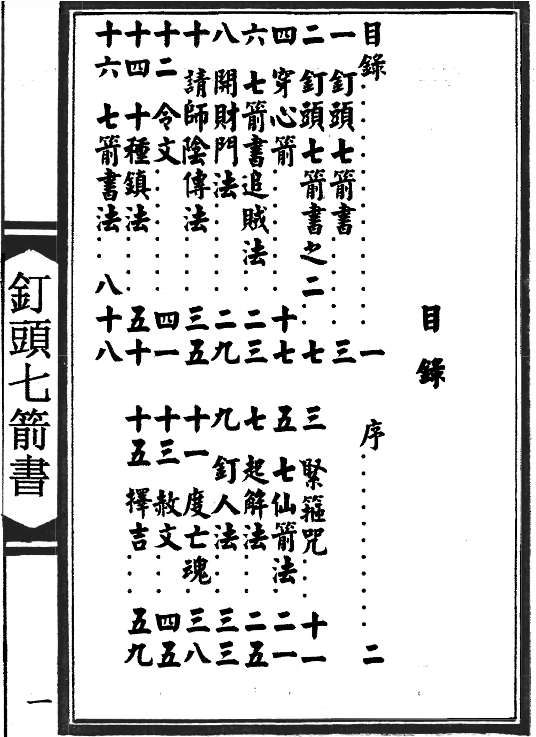 目錄
目錄……一 序……二
一 釘頭七箭書……三
二 釘頭七箭書之二……七 三 緊箍咒……十一
四 穿心箭……十七 五 七仙箭法……二一
六 七箭書追賊法……二三 七 起解法……二五
八 開財門法……二九 九 釘人法……三三
十 請師陰傳法……三五 十一 度亡魂……三八
十二 令文……四一 十三 赦文……四五
十四 十種鎮法……五十 十五 擇吉……五九
十六 七箭書法……八十八
釘頭七箭書
一